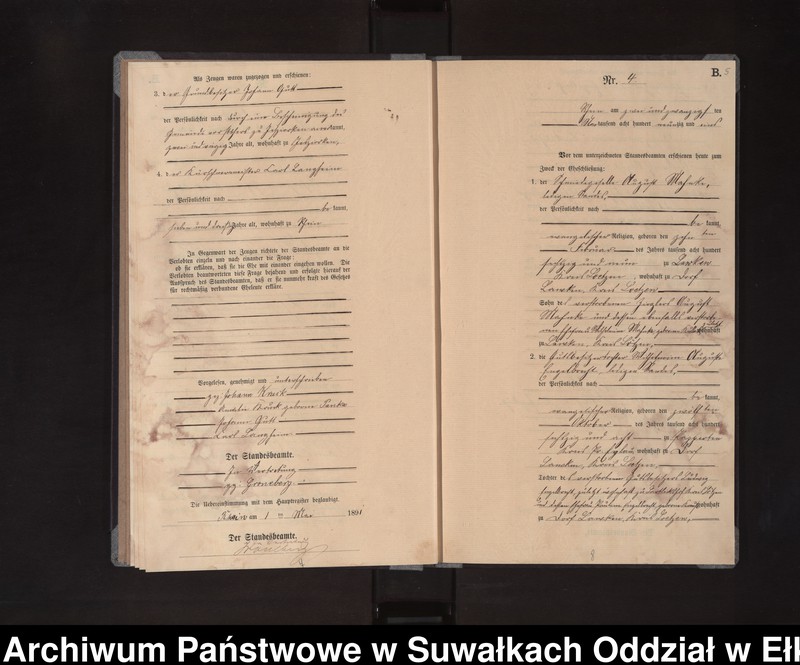 Als Zeugen waren zugezogen und erschienen:
3. der Grundbesitzer Johann Gutt
der Persönlichkeit nach durch eine Bescheinigung des
Gemeindevorstehers zu anerkannt,
Jahre alt, wohnhaft zu
4. der Kürschnermeister Karl Langhann
der Persönlichkeit nach
be kannt,
Jahre alt, wohnhaft zu Rhein
In Gegenwart der Zeugen richtete der Standesbeamte an die
Verlobten einzeln und nach einander die Frage:
ob sie erklären, daß sie die Ehe mit einander eingehen wollen. Die
Verlobten beantworteten diese Frage bejahend und erfolgte hierauf der
Ausspruch des Standesbeamten, daß er sie nunmehr kraft des Gesetzes
für rechtmäßig verbundene Eheleute erkläre.
Vorgelesen, genehmigt und unterschrieben
gez. Johann
geborene
Johann Gutt
Karl Langhann
Der Standesbeamte.
In Vertretung
gez. Groneberg.
Die Uebereinstimmung mit dem Hauptregister beglaubigt.
Rhein am 1 ten Mai 1891
Der Standesbeamte.
B.
5
Nr. 4
Rhein am zwei und zwanzigsten
Mai tausend acht hundert neunzig und eins
Vor dem unterzeichneten Standesbeamten erschienen heute zum
Zweck der Eheschließung:
1. der Schmiedegeselle August Mahnke,
ledigen Standes,
der Persönlichkeit nach
be kannt,
evangelischer Religion, geboren den zehn ten
Februar des Jahres tausend acht hundert
sechszig und neun zu Lawken
Kreis Loetzen, wohnhaft zu Dorf
Lawken, Kreis Loetzen
Sohn des verstorbenen August
Mahnke und dessen ebenfalls
wohnhaft
zu Lawken, Kreis Lötzen.
2. die Gutsbesitzertochter Wilhelmine Auguste
Engelbrecht, ledigen Standes,
der Persönlichkeit nach
be kannt,
evangelischer Religion, geboren den zwölf ten
Oktober des Jahres tausend acht hundert
sechszig und acht zu
Kreis Pr. Eylau, wohnhaft zu Dorf
Lawken, Kreis Loetzen
Tochter des verstorbenen Gutsbesitzers
Engelbrecht, zuletzt wohnhaft zu
und dessen Ehefrau geborene wohnhaft
zu Dorf Lawken, Kreis Loetzen.
8
Archiwum Państwowe w Suwałkach Oddział w Ełk